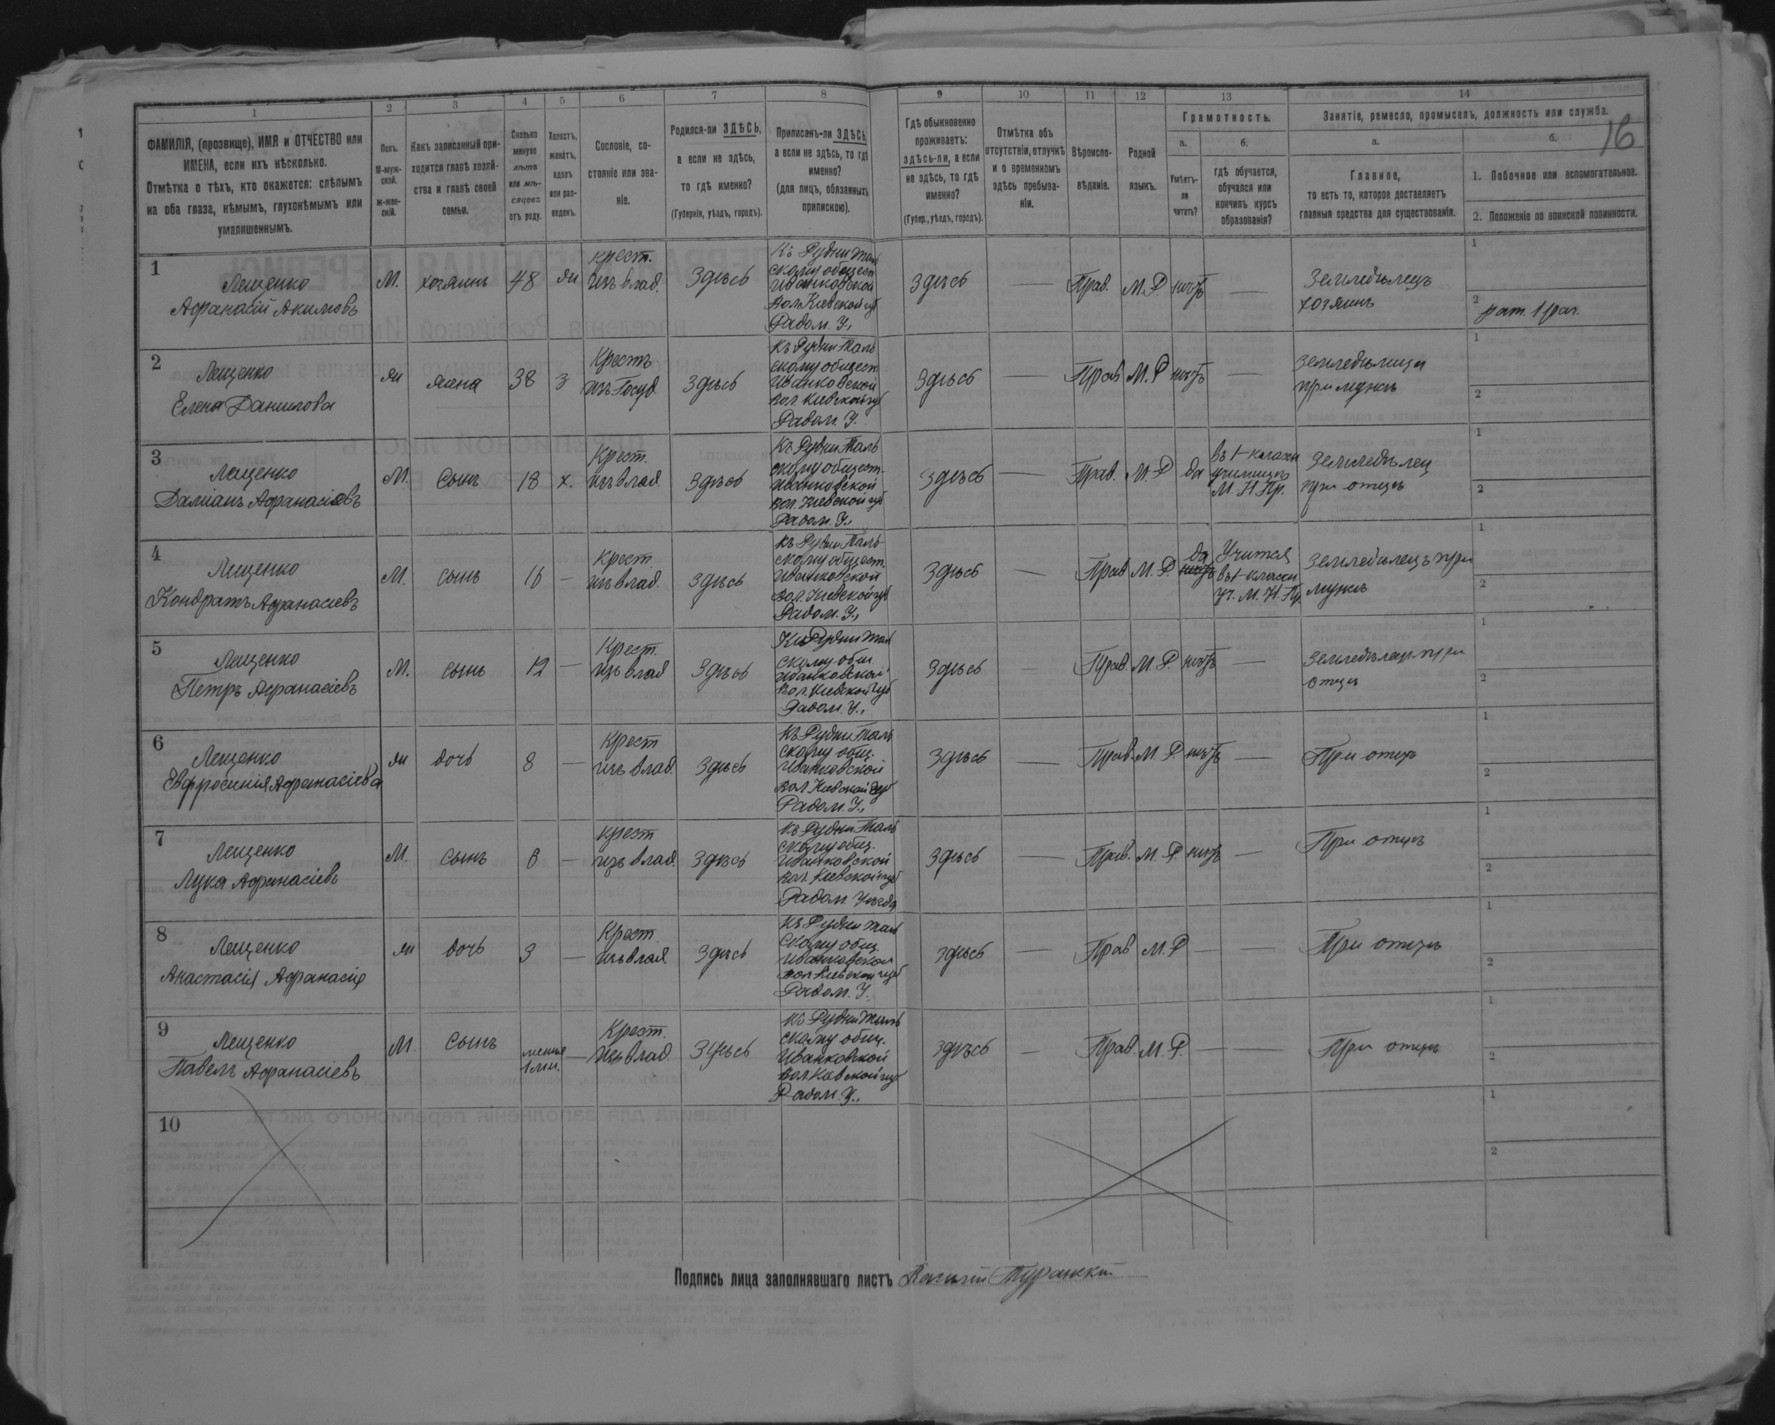 16
1 2 3 4 5 6 7 8 9 10 11 12 13 14
ФАМИЛІЯ, (прозвище), ИМЯ и ОТЧЕСТВО или ИМЕНА, если ихъ нѣсколько.
Отмѣтка о тѣхъ, кто окажется: слѣпымъ на оба глаза, нѣмымъ, глухонѣмымъ или умалишеннымъ.
Полъ. М-мужской. Ж-женскій.
Какъ записанный приходится главѣ хозяйства и главѣ своей семьи.
Сколько минуло лѣтъ или мѣсяцевъ отъ роду.
Холостъ, женатъ, вдовъ или разведенъ.
Сословіе, состояніе или званіе.
Родился-ли ЗДѢСЬ, а если не здѣсь, то гдѣ именно?
(Губернія, уѣздъ, городъ).
Приписанъ-ли ЗДѢСЬ, а если не здѣсь, то гдѣ именно?
(для лицъ, обязанныхъ припискою).
Гдѣ обыкновенно проживаетъ: здѣсь-ли, а если не здѣсь, то гдѣ именно?
(Губер., уѣздъ, городъ).
Отмѣтка объ отсутствіи, отлучкѣ и о временномъ здѣсь пребываніи.
Вѣроисповѣданіе.
Родной языкъ.
Грамотность.
а. Умѣетъ-ли читать?
б. гдѣ обучается, обучался или кончилъ курсъ образованія?
Занятіе, ремесло, промыселъ, должность или служба.
а. Главное, то есть то, которое доставляетъ главныя средства для существованія.
б. 1. Побочное или вспомогательное.
2. Положеніе по воинской повинности.
1 Лещенко Афанасій Акимовъ М. хозяинъ 48 жн крест. изъ влад. Здѣсь Къ Рудни Тальскому общест Иванковской вол Кіевской губ Радом. У., здѣсь — Прав. М.Р. нѣтъ — Земледѣлецъ хозяинъ 1 2 рат. 1 раз.
2 Лещенко Елена Данилова жн жена 38 з Крестъ изъ Госуд. Здѣсь Къ Рудни Тальскому общест Иванковской вол Кіевской губ Радом. У. здѣсь — Прав М.Р нѣтъ — земледѣлица при мужѣ 1 2
3 Лещенко Даміанъ Афанасіевъ М. Сынъ 18 х. Крест. изъ влад. здѣсь Къ Рудни Тальскому общест. Иванковской вол. Кіевской губ Радом. У., здѣсь — Прав. М.Р да въ 1-классн училищѣ М. Н. Пр. земледѣлец при отцѣ 1 2
4 Лещенко Кондратъ Афанасіевъ М. сынъ 16 — крест. изъ влад. здѣсь Къ Рудни Тальскому общест. Иванковской вол. Кіевской губ Радом. У., здѣсь — Прав М.Р. да нѣтъ Учится въ 1-классн уч. М. Н. Пр. земледѣлецъ при мужѣ 1 2
5 Лещенко Петръ Афанасіевъ М. сынъ 12 — Крест. изъ влад здѣсь Къ Рудни Тальскому общ Иванковской вол. Кіевской губ Радом. У., здѣсь — Прав. М.Р. нѣтъ — земледѣлецъ при отцѣ 1 2
6 Лещенко Евфросинія Афанасіева жн дочь 8 — Крест изъ влад. здѣсь Къ Рудни Тальскому общ. Иванковской вол. Кіевской губ Радом. У., здѣсь — Прав. М. Р нѣтъ — При отцѣ 1 2
7 Лещенко Лука Афанасіевъ М. сынъ 6 — крест изъ влад. здѣсь Къ Рудни Тальскому общ. Иванковской вол. Кіевской губ Радом Уѣзда здѣсь — Прав. М. Р нѣтъ — При отцѣ 2
8 Лещенко Анастасія Афанасіе жн дочь 3 — Крест. изъ влад здѣсь Къ Рудни Тальскому общ Иванковской вол Кіевской губ Радом. У. здѣсь — Прав М.Р — — При отцѣ 1 2
9 Лещенко Павелъ Афанасіевъ М. Сынъ менѣе 1 м. — Крест. изъ влад здѣсь Къ Рудни Тальскому общ. Иванковской вол Кіевской губ Радом. У., здѣсь — Прав. М. Р. — — При отцѣ 1 2
10 1 2
Подпись лица заполнявшаго листъ